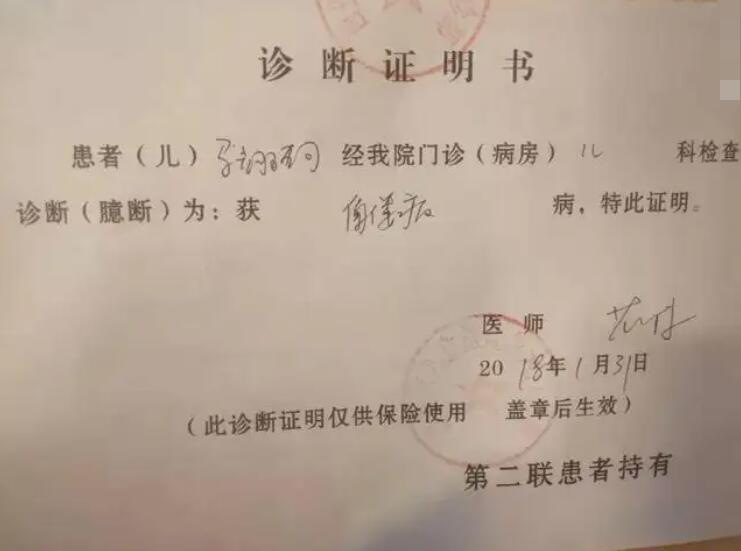 诊断证明书
患者（儿）经我院门诊（病房）儿 科检查
诊断（臆断）为：获 佝偻病 病，特此证明。
医 师
2018年1月31日
（此诊断证明仅供保险使用 盖章后生效）
第二联患者持有